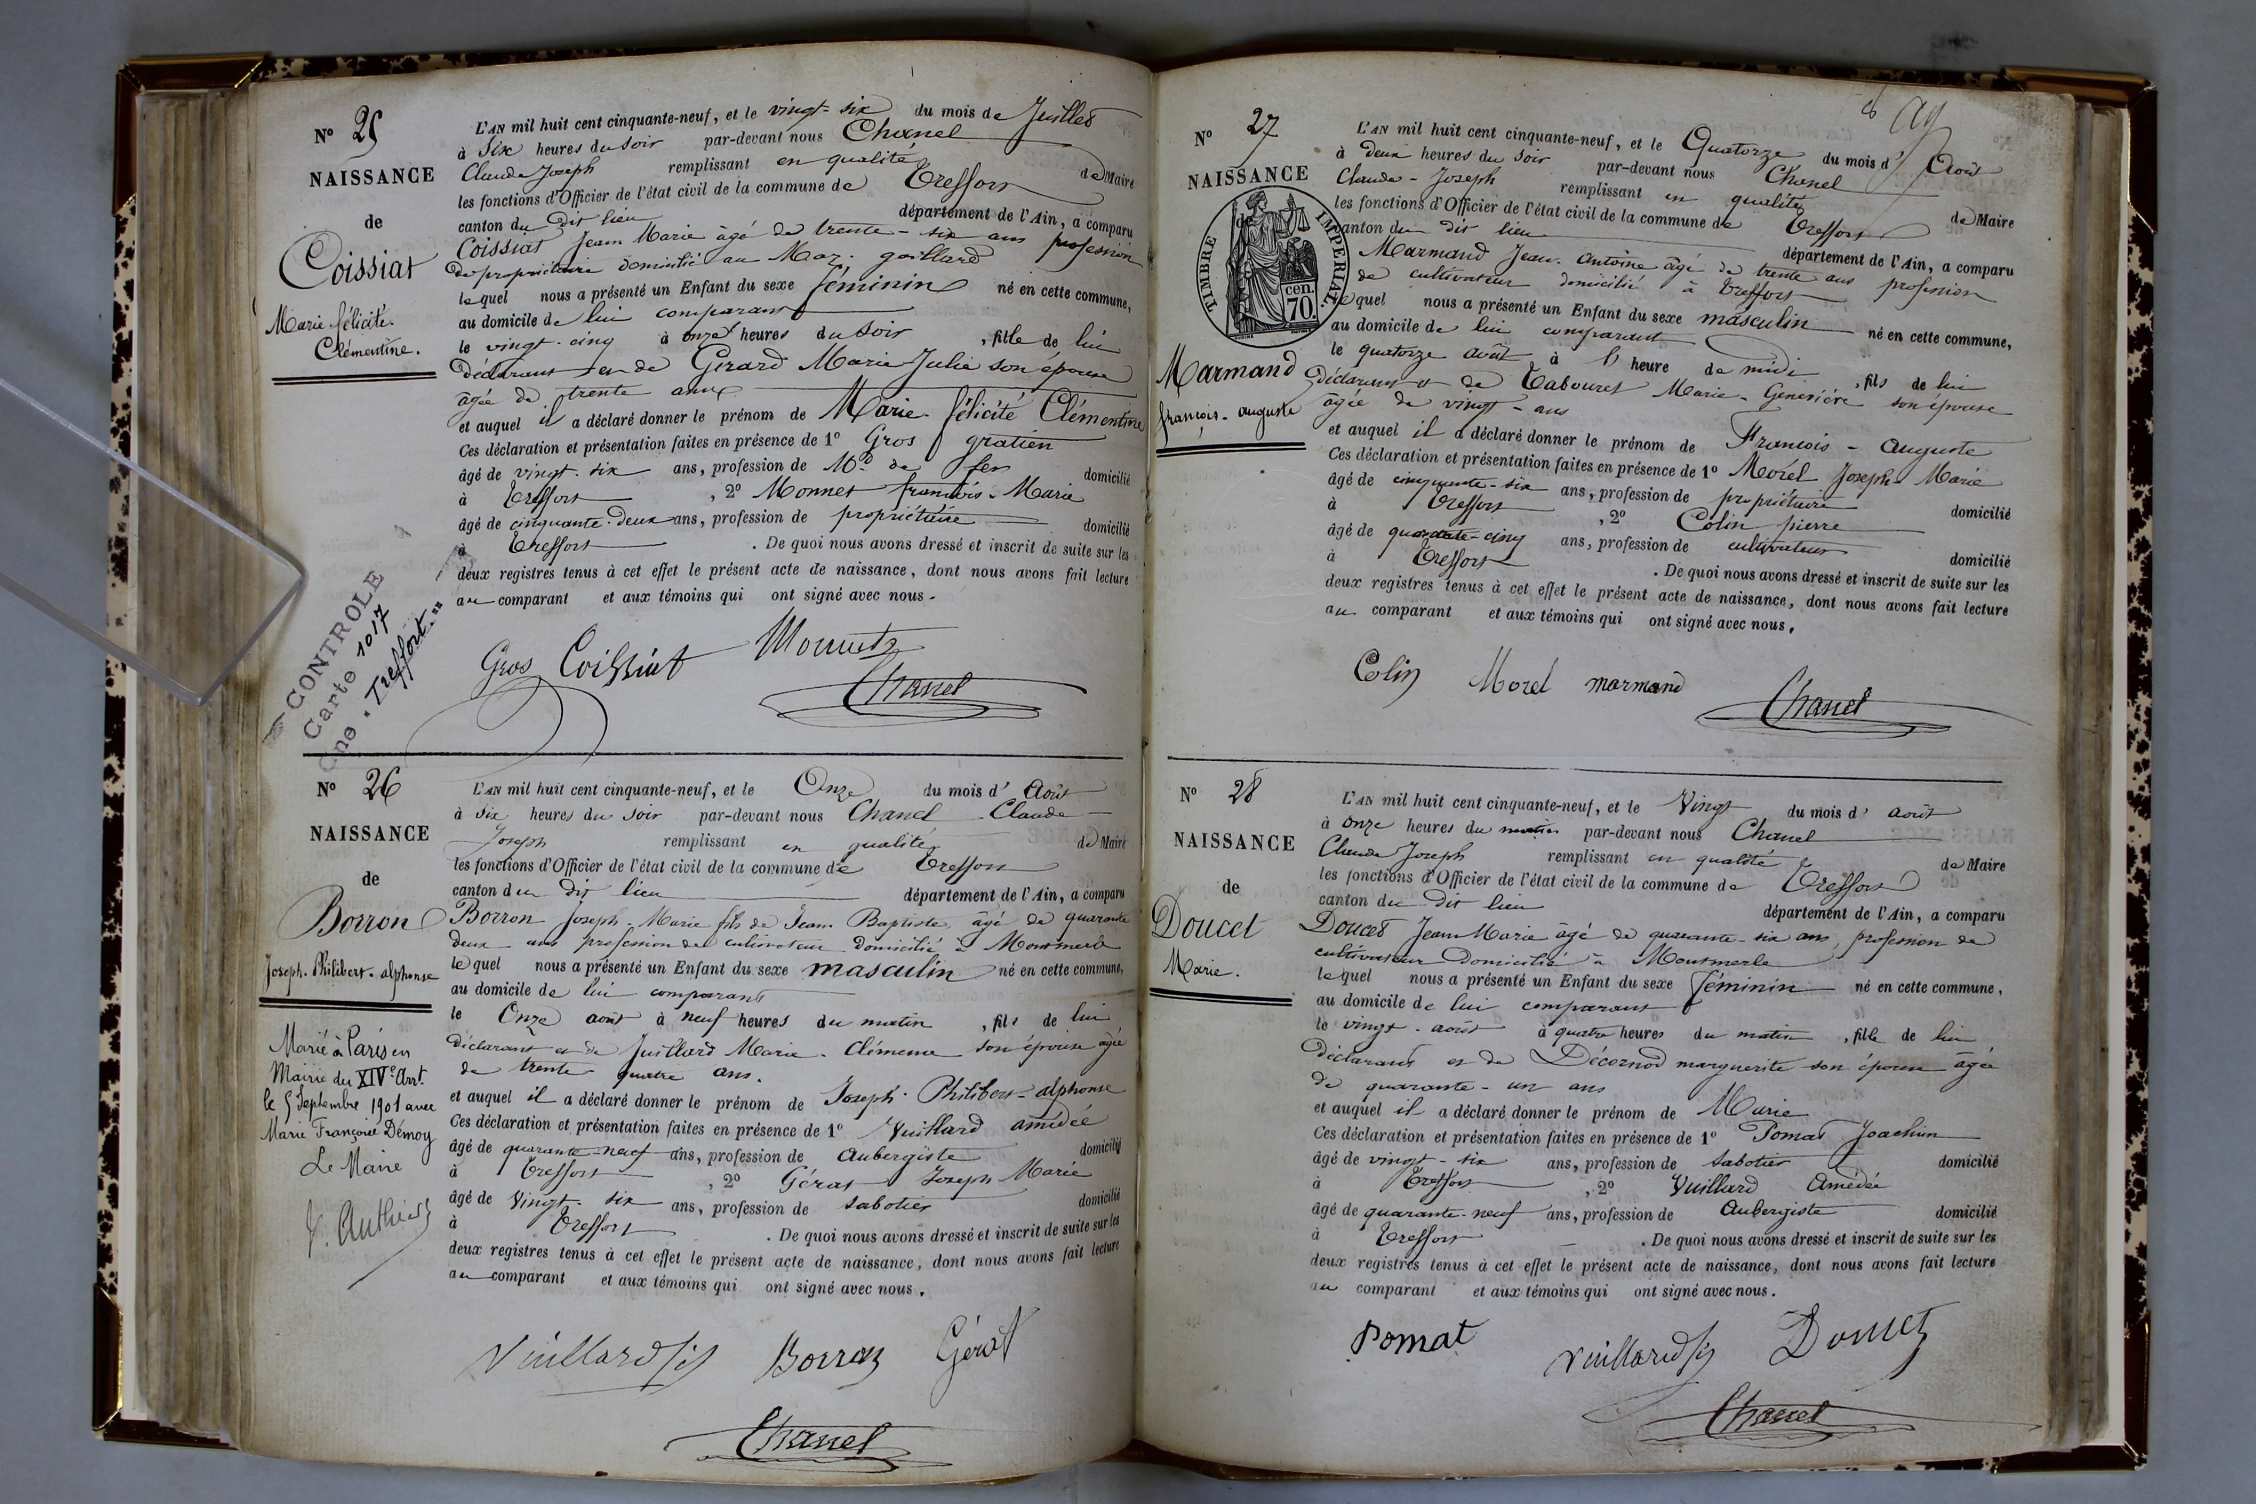 N° 25
NAISSANCE
de
Coissiat
Marie félicité
Clémentine.
L'AN mil huit cent cinquante-neuf, et le vingt-six du mois de Juillet
à Six heures du Soir par-devant nous Chanel
Claude Joseph remplissant en qualité de Maire
les fonctions d'Officier de l'état civil de la commune de Treffort
canton du dit lieu département de l'Ain, a comparu
Coissiat Jean Marie âgé de trente-six ans profession
de propriétaire domicilié au Maz. gaillard
lequel nous a présenté un Enfant du sexe féminin né en cette commune,
au domicile de lui comparant
le vingt-cinq à onze heures du Soir, fille de lui
déclarant et de Girard Marie Julie son épouse
âgée de trente ans
et auquel il a déclaré donner le prénom de Marie-félicité Clémentine
Ces déclaration et présentation faites en présence de 1° Gros gratien
âgé de vingt-six ans, profession de Md de fer domicilié
à Treffort, 2° Monnet françois-Marie
âgé de cinquante-deux ans, profession de propriétaire domicilié
à Treffort. De quoi nous avons dressé et inscrit de suite sur les
deux registres tenus à cet effet le présent acte de naissance, dont nous avons fait lecture
au comparant et aux témoins qui ont signé avec nous.
CONTROLE
Carte 1017
Cne "Treffort."
Gros Coissiat Monnet
Chanel
N° 26
NAISSANCE
de
Borron
Joseph-Philibert-alphonse
Marié à Paris en
Mairie du XIVe Arrt.
le 5 Septembre 1901 avec
Marie Françoise Démoy
Le Maire
L'AN mil huit cent cinquante-neuf, et le Onze du mois d'Août
à six heures du soir par-devant nous Chanel Claude
Joseph remplissant en qualité de Maire
les fonctions d'Officier de l'état civil de la commune de Treffort
canton du dit lieu département de l'Ain, a comparu
Borron Joseph-Marie fils de Jean Baptiste, âgé de quarante
deux ans profession de cultivateur domicilié à Montmerle
lequel nous a présenté un Enfant du sexe masculin né en cette commune,
au domicile de lui comparant
le Onze août à neuf heures du matin, fils de lui
déclarant et de Juillard Marie-Clémence son épouse âgée
de trente quatre ans.
et auquel il a déclaré donner le prénom de Joseph-Philibert-alphonse
Ces déclaration et présentation faites en présence de 1° Vuillard amédée
âgé de quarante-neuf ans, profession de Aubergiste domicilié
à Treffort, 2° Gérat Joseph Marie
âgé de Vingt-six ans, profession de sabotier domicilié
à Treffort. De quoi nous avons dressé et inscrit de suite sur les
deux registres tenus à cet effet le présent acte de naissance, dont nous avons fait lecture
au comparant et aux témoins qui ont signé avec nous.
Vuillard fs Borron Gérat
Chanel
N° 27
NAISSANCE
de
TIMBRE IMPERIAL.
cen.
70.
Marmand
françois-auguste
L'AN mil huit cent cinquante-neuf, et le Quatorze du mois d'Août
à deux heures du soir par-devant nous Chanel
Claude-Joseph remplissant en qualité de Maire
les fonctions d'Officier de l'état civil de la commune de Treffort
canton du dit lieu département de l'Ain, a comparu
Marmand Jean-Antoine âgé de trente ans profession
de cultivateur domicilié à Treffort
lequel nous a présenté un Enfant du sexe masculin né en cette commune,
au domicile de lui comparant
le quatorze août à l'heure de midi, fils de lui
déclarant et de Tabouret Marie-Geneviève son épouse
âgée de vingt-ans
et auquel il a déclaré donner le prénom de François-auguste
Ces déclaration et présentation faites en présence de 1° Morel Joseph-Marie
âgé de cinquante-six ans, profession de propriétaire domicilié
à Treffort, 2° Colin pierre
âgé de quarante-cinq ans, profession de cultivateur domicilié
à Treffort. De quoi nous avons dressé et inscrit de suite sur les
deux registres tenus à cet effet le présent acte de naissance, dont nous avons fait lecture
au comparant et aux témoins qui ont signé avec nous.
Colin Morel marmand
Chanel
N° 28
NAISSANCE
de
Doucet
Marie.
L'AN mil huit cent cinquante-neuf, et le Vingt du mois d'août
à onze heures du matin par-devant nous Chanel
Claude Joseph remplissant en qualité de Maire
les fonctions d'Officier de l'état civil de la commune de Treffort
canton du dit lieu département de l'Ain, a comparu
Doucet Jean Marie agé de quarante-six ans, profession de
cultivateur domicilié à Montmerle
lequel nous a présenté un Enfant du sexe féminin né en cette commune,
au domicile de lui comparant
le vingt-août à quatre heures du matin, fille de lui
déclarant et de Décornod marguerite son épouse âgée
de quarante-un ans
et auquel il a déclaré donner le prénom de Marie
Ces déclaration et présentation faites en présence de 1° Pomat Joachim
âgé de vingt-six ans, profession de sabotier domicilié
à Treffort, 2° Vuillard Amédée
âgé de quarante-neuf ans, profession de Aubergiste domicilié
à Treffort. De quoi nous avons dressé et inscrit de suite sur les
deux registres tenus à cet effet le présent acte de naissance, dont nous avons fait lecture
au comparant et aux témoins qui ont signé avec nous.
Pomat Vuillard fs Doucet
Chanel